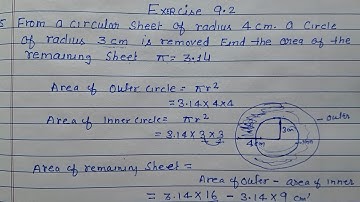 Exercise 9.2
5 From a circular sheet of radius 4 cm. a circle
of radius 3 cm is removed Find the area of the
remaining sheet π = 3.14
Area of outer circle = πr²
= 3.14 × 4 × 4
Area of inner circle = πr²
= 3.14 × 3 × 3
outer
3cm
4cm
Area of remaining sheet =
Area of outer - area of inner
= 3.14 × 16 - 3.14 × 9 cm²